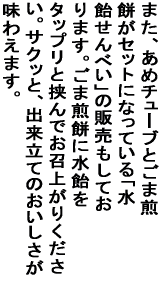 また、あめチューブとごま煎
餅がセットになっている「水
飴せんべい」の販売もしてお
ります。ごま煎餅に水飴を
タップリと挟んでお召上がりくださ
い。サクッと、出来立てのおいしさが
味わえます。